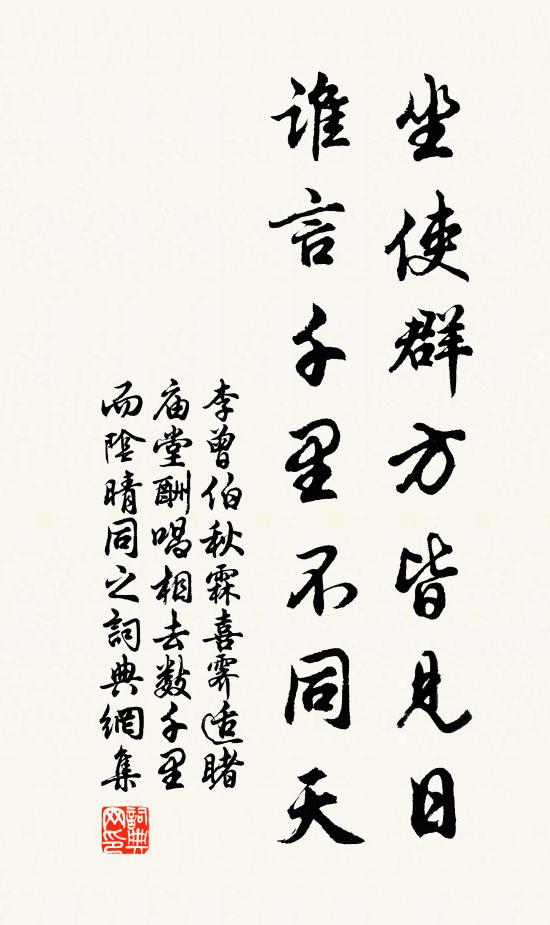 坐使群方皆見日
誰言千里不同天
李曾伯秋霖喜霽适睹
庙堂酬唱相去数千里
而陰晴同之詞典網集
詞典
网印